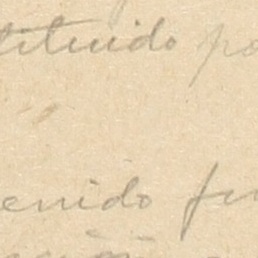 tituido po
enido fu